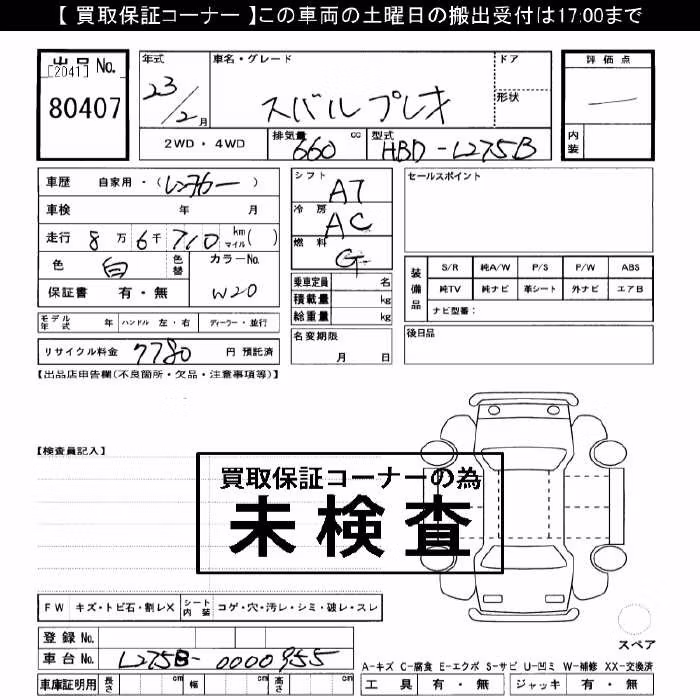 【 買取保証コーナー 】この車両の土曜日の搬出受付は17:00まで
出品 No.
[2041]
80407
年式 車名・グレード ドア 評価点
23/2月 スバルプレオ 形状
内装
2WD・4WD 排気量 660 cc 型式 HBD-L275B
車歴 自家用・(レンタカー)
車検 年 月
走行 8万6千710 km マイル( )
色 白 色替 カラーNo.
保証書 有・無 W20
シフト AT
冷房 AC
燃料 G
乗車定員 名
積載量 kg
総重量 kg
セールスポイント
装備品 S/R 純A/W P/S P/W ABS
純TV 純ナビ 革シート 外ナビ エアB
ナビ型番:
モデル年式 年 ハンドル 左・右 ディーラー・並行
リサイクル料金 7780 円 預託済
名変期限 月 日
後日品
【出品店申告欄(不良箇所・欠品・注意事項等)】
【検査員記入】
買取保証コーナーの為
未検査
FW キズ・トビ石・割レX シート内装 コゲ・穴・汚レ・シミ・破レ・スレ
スペア
登録 No.
車台 No. L275B-0000955
A-キズ C-腐食 E-エクボ S-サビ U-凹ミ W-補修 XX-交換済
車庫証明用 長さ cm 幅 cm 高さ cm
工具 有・無 ジャッキ 有・無